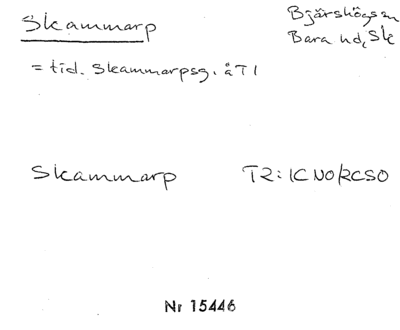 Skammarp
Bjärshögs sn
Bara hd, Sk
= tid. Skammarpsg. å T1
Skammarp T2: 1CNO/2CSO
Nr 15446